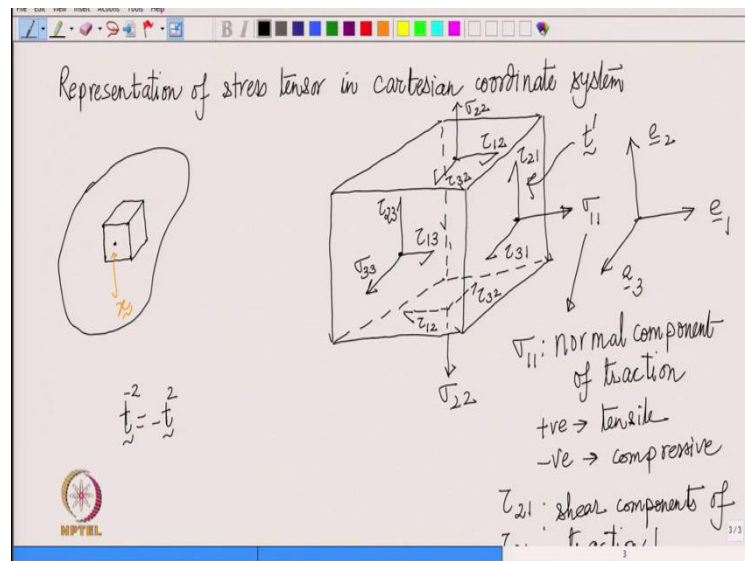 File Edit View Insert Actions Tools Help
B I
Representation of stress tensor in cartesian coordinate system
σ22
τ12
τ32
τ21
t^1
e2
τ23
τ13
σ33
σ11
e1
τ31
e3
x
τ32
τ12
σ22
σ11: normal component
of traction
+ve → tensile
-ve → compressive
t^-2 = -t^2
τ21: shear components of
NPTEL
3/3
3